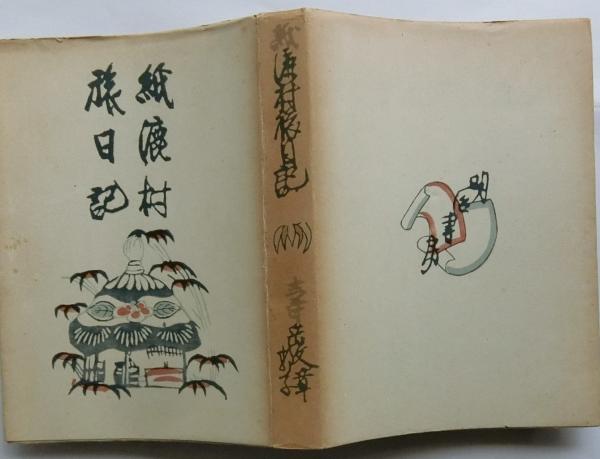 紙漉村
旅日記
紙漉村旅日記
壽岳文章
明治書房